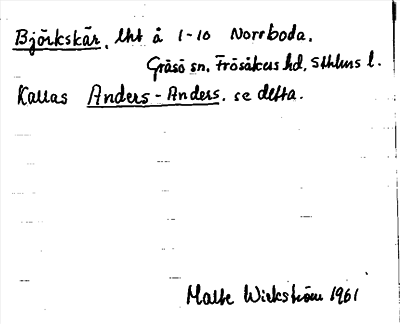 Björkskär, lht å 1-10 Norrboda.
Gräsö sn, Frösåkers hd, Sthlms l.
Kallas Anders-Anders. se detta.
Malte Wickström 1961